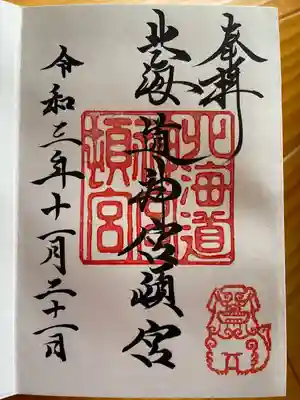 奉拝
北海道神宮頓宮
北海道神宮頓宮
令和三年十一月二十一日